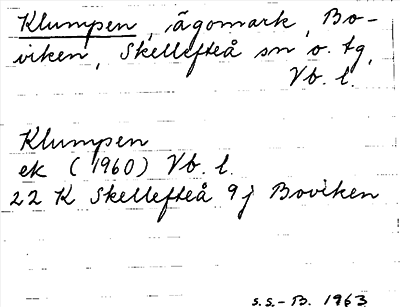 Klumpen, ägomark, Bo-
viken, Skellefteå sn o. tg,
Vb. l.
Klumpen
ek (1960) Vb. l.
22 K Skellefteå 9 j Boviken
S.S.-B. 1963